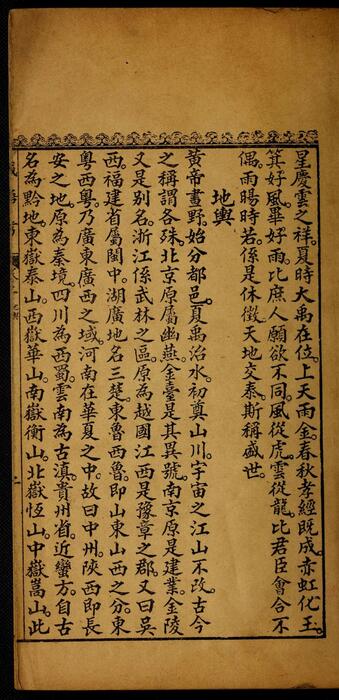 星慶雲之祥。夏時大禹在位。上天雨金。春秋孝經既成。赤虹化玉。
箕好風。畢好雨。比庶人願欲不同。風從虎。雲從龍。比君臣會合不
偶。雨暘時若。係是休徵。天地交泰。斯稱盛世。
地輿
黃帝畫野。始分都邑。夏禹治水。初奠山川。宇宙之江山不改。古今
之稱謂各殊。北京原屬幽燕。金臺是其異號。南京原是建業。金陵
又是別名。浙江係武林之區。原為越國。江西是豫章之郡。又曰吳
西。福建省屬閩中。湖廣地名三楚。東魯西魯。即山東山西之分。東
粵西粵。乃廣東廣西之域。河南在華夏之中。故曰中州。陝西即長
安之地。原為秦境。四川為西蜀。雲南為古滇。貴州省。近蠻方。自古
名為黔地。東嶽泰山。西嶽華山。南嶽衡山。北嶽恆山。中嶽嵩山。此